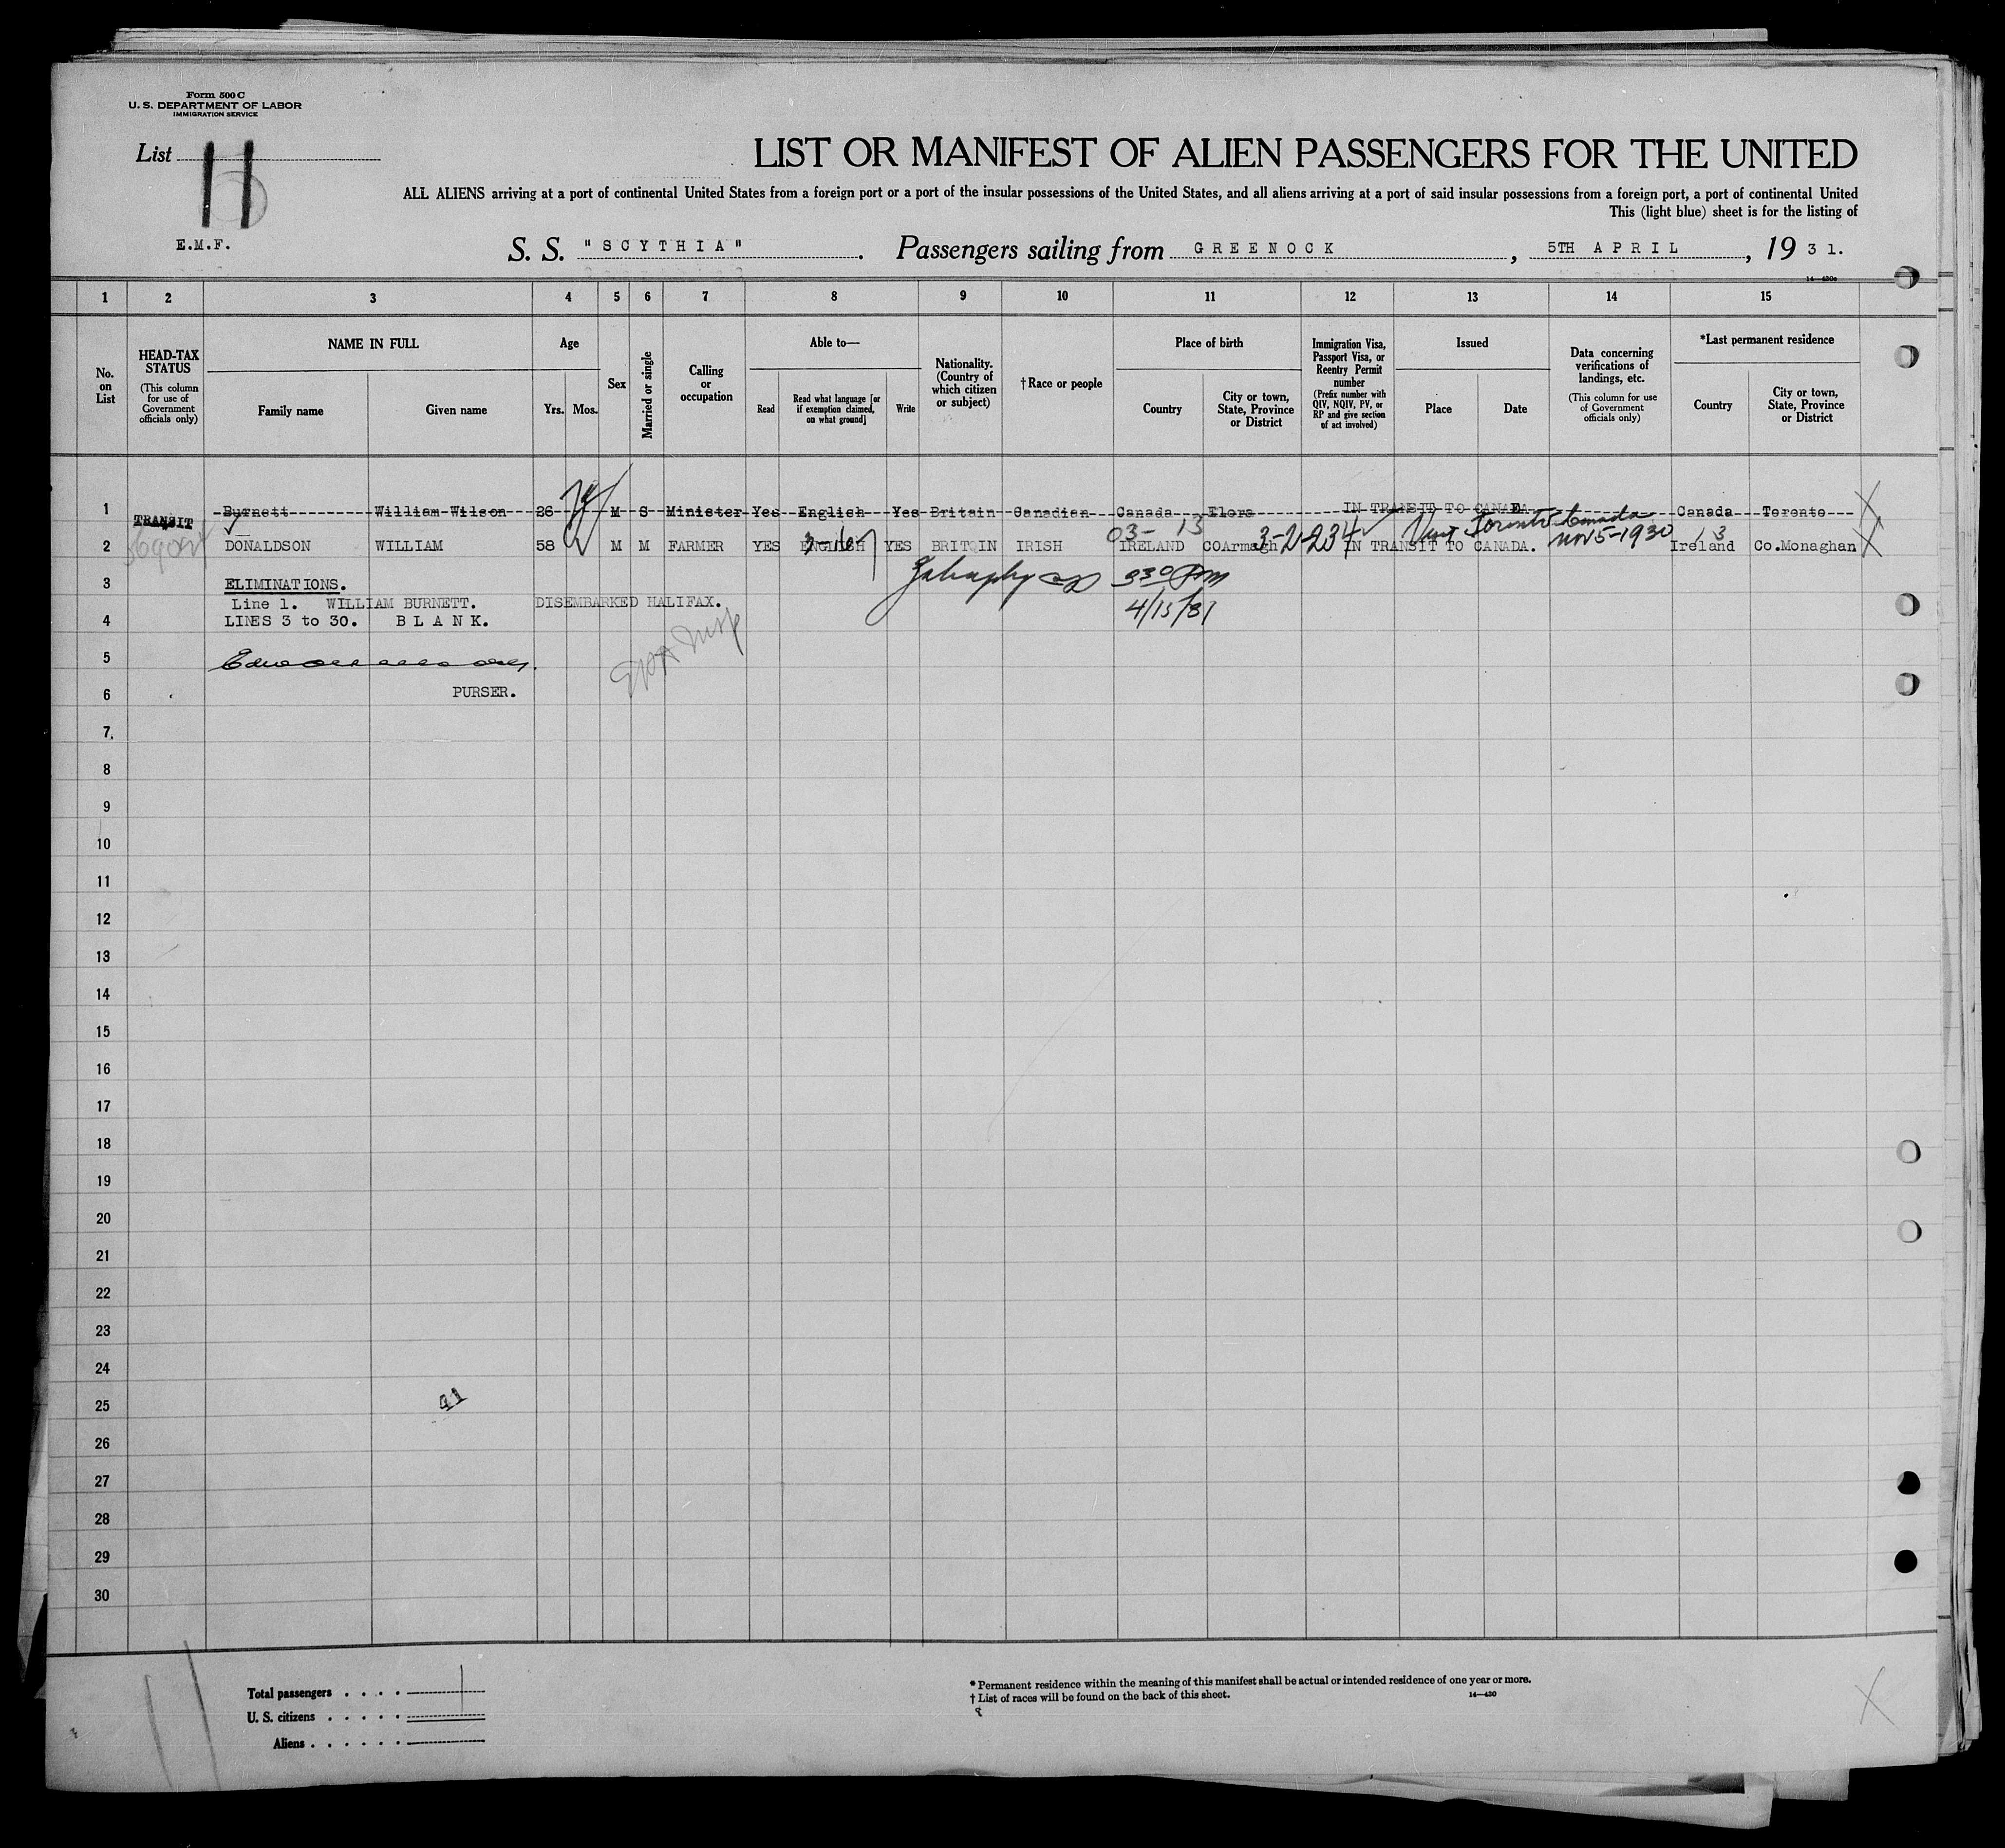 Form 500 C
U. S. DEPARTMENT OF LABOR
IMMIGRATION SERVICE
List 11
LIST OR MANIFEST OF ALIEN PASSENGERS FOR THE UNITED
ALL ALIENS arriving at a port of continental United States from a foreign port or a port of the insular possessions of the United States, and all aliens arriving at a port of said insular possessions from a foreign port, a port of continental United
This (light blue) sheet is for the listing of
E.M.F.
S. S. "SCYTHIA". Passengers sailing from GREENOCK, 5TH APRIL, 19 31.
14—430a
1 2 3 4 5 6 7 8 9 10 11 12 13 14 15
No. on List
HEAD-TAX STATUS (This column for use of Government officials only)
NAME IN FULL
Family name
Given name
Age
Yrs. Mos.
Sex
Married or single
Calling or occupation
Able to—
Read
Read what language [or if exemption claimed, on what ground]
Write
Nationality. (Country of which citizen or subject)
†Race or people
Place of birth
Country
City or town, State, Province or District
Immigration Visa, Passport Visa, or Reentry Permit number (Prefix number with QIV, NQIV, PV, or RP and give section of act involved)
Issued
Place
Date
Data concerning verifications of landings, etc. (This column for use of Government officials only)
*Last permanent residence
Country
City or town, State, Province or District
1 Burnett William Wilson 26 M S Minister Yes English Yes Britain Canadian Canada Elora IN TRANSIT TO CANADA Canada Toronto
TRANSIT
03- 13 3-2-234 Visit Toronto Canada Nov 5-1930 13
2 DONALDSON WILLIAM 58 M M FARMER YES ENGLISH YES BRITAIN IRISH IRELAND COArmagh IN TRANSIT TO CANADA. Ireland Co.Monaghan
3 ELIMINATIONS.
330 PM
Line 1. WILLIAM BURNETT. DISEMBARKED HALIFAX.
4/15/31
4 LINES 3 to 30. BLANK.
5
6 PURSER.
7
8
9
10
11
12
13
14
15
16
17
18
19
20
21
22
23
24
25
41
26
27
28
29
30
Total passengers 1
U. S. citizens
Aliens
* Permanent residence within the meaning of this manifest shall be actual or intended residence of one year or more.
† List of races will be found on the back of this sheet.
14—430